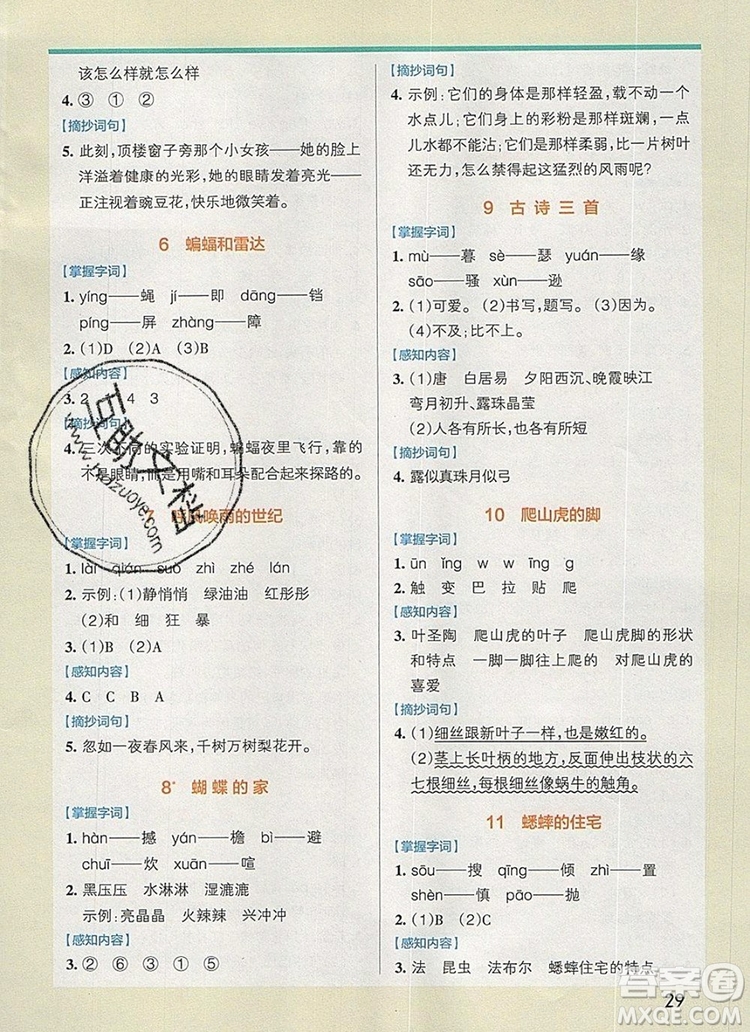 该怎么样就怎么样
4. ③ ① ②
【摘抄词句】
5. 此刻，顶楼窗子旁那个小女孩——她的脸上
洋溢着健康的光彩，她的眼睛发着亮光——
正注视着豌豆花，快乐地微笑着。
6 蝙蝠和雷达
【掌握字词】
1. yíng——蝇 jí——即 dāng——铛
píng——屏 zhàng——障
2. (1)D (2)A (3)B
【感知内容】
3. 2 4 3
【摘抄词句】
4. 三次不同的实验证明，蝙蝠夜里飞行，靠的
不是眼睛，而是用嘴和耳朵配合起来探路的。
呼风唤雨的世纪
【掌握字词】
1. lài qián suǒ zhì zhé lán
2. 示例：(1)静悄悄 绿油油 红彤彤
(2)和 细 狂 暴
3. (1)B (2)A
【感知内容】
4. C C B A
【摘抄词句】
5. 忽如一夜春风来，千树万树梨花开。
8* 蝴蝶的家
【掌握字词】
1. hàn——撼 yán——檐 bì——避
chuī——炊 xuān——喧
2. 黑压压 水淋淋 湿漉漉
示例：亮晶晶 火辣辣 兴冲冲
【感知内容】
3. ② ⑥ ③ ① ⑤
【摘抄词句】
4. 示例：它们的身体是那样轻盈，载不动一个
水点儿；它们身上的彩粉是那样斑斓，一点
儿水都不能沾；它们是那样柔弱，比一片树叶
还无力，怎么禁得起这猛烈的风雨呢？
9 古诗三首
【掌握字词】
1. mù——暮 sè——瑟 yuán——缘
sāo——骚 xùn——逊
2. (1)可爱。 (2)书写，题写。 (3)因为。
(4)不及；比不上。
【感知内容】
3. (1)唐 白居易 夕阳西沉、晚霞斜映
弯月初升、露珠晶莹
(2)人各有所长，也各有所短
【摘抄词句】
4. 露似真珠月似弓
10 爬山虎的脚
【掌握字词】
1. ūn īng w w īng g
2. 触 变 巴 拉 贴 爬
【感知内容】
3. 叶圣陶 爬山虎的叶子 爬山虎的形状
和特点 一脚一脚往上爬的 对爬山虎的
喜爱
【摘抄词句】
4. (1)细丝跟新叶子一样，也是嫩红的。
(2)茎上长叶柄的地方，反面伸出枝状的六
七根细丝，每根细丝像蜗牛的触角。
11 蟋蟀的住宅
【掌握字词】
1. sōu——搜 qīng——倾 zhì——置
shèn——慎 pāo——抛
2. (1)B (2)C
【感知内容】
3. 法 昆虫 法布尔 蟋蟀住宅的特点
29
互助文档
www.hozuoye.com
答案圈
MXQE.COM